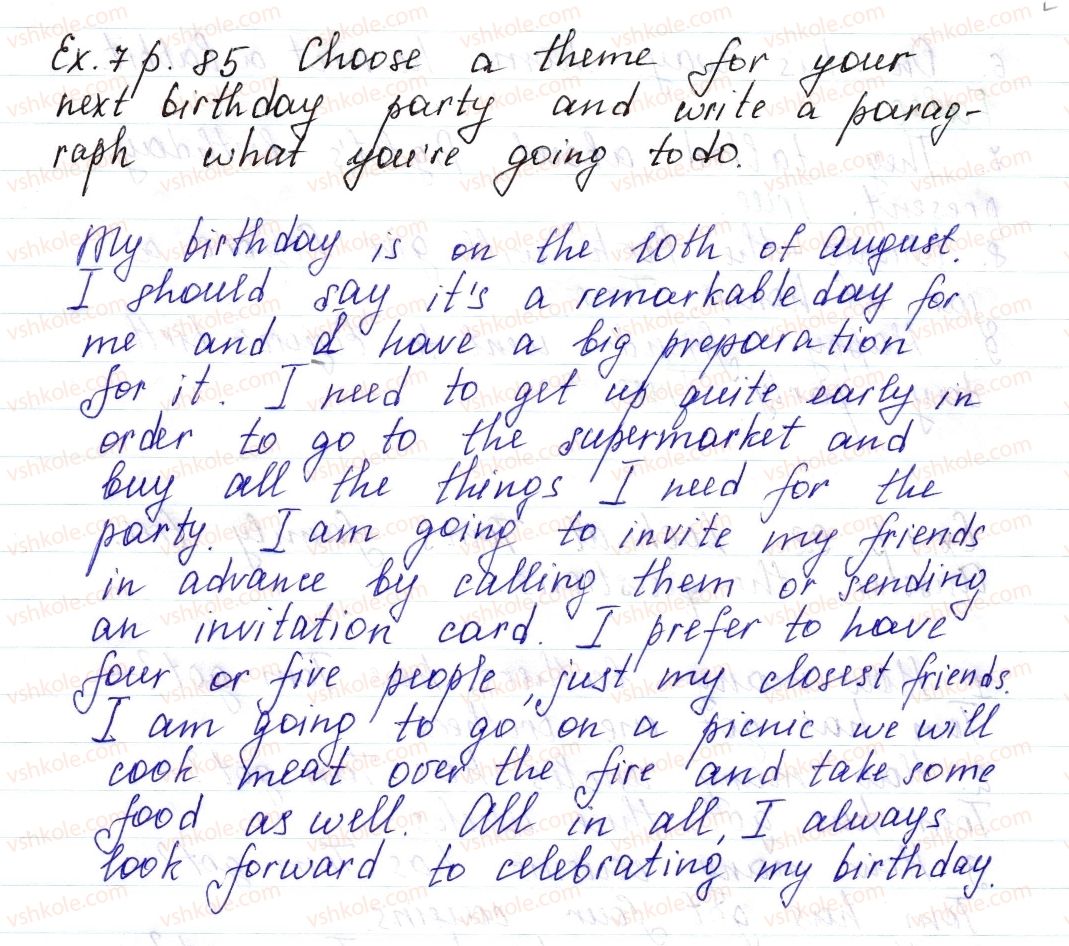 Ex. 7 p. 85 Choose a theme for your
next birthday party and write a parag-
raph what you're going to do.
My birthday is on the 10th of August.
I should say it's a remarkable day for
me and I have a big preparation
for it. I need to get up quite early in
order to go to the supermarket and
buy all the things I need for the
party. I am going to invite my friends
in advance by calling them or sending
an invitation card. I prefer to have
four or five people, just my closest friends.
I am going to go on a picnic we will
cook meat over the fire and take some
food as well. All in all, I always
look forward to celebrating my birthday.